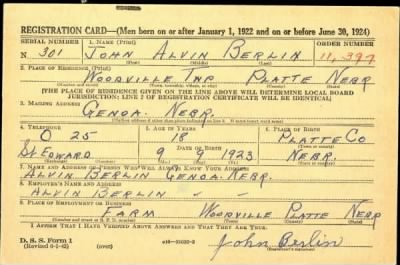 REGISTRATION CARD—(Men born on or after January 1, 1922 and on or before June 30, 1924)
SERIAL NUMBER 1. NAME (Print) ORDER NUMBER
N 301 JOHN ALVIN BERLIN 11,397
(First) (Middle) (Last)
2. PLACE OF RESIDENCE (Print)
WOODVILLE TWP PLATTE NEBR
(Number and street) (Town, township, village, or city) (County) (State)
[THE PLACE OF RESIDENCE GIVEN ON THE LINE ABOVE WILL DETERMINE LOCAL BOARD
JURISDICTION; LINE 2 OF REGISTRATION CERTIFICATE WILL BE IDENTICAL]
3. MAILING ADDRESS
GENOA. NEBR.
4. TELEPHONE 5. AGE IN YEARS 6. PLACE OF BIRTH
O 25 18 PLATTE CO
DATE OF BIRTH
St EDWARD 9 9 1923 NEBR.
7. NAME AND ADDRESS OF PERSON WHO WILL ALWAYS KNOW YOUR ADDRESS
ALVIN BERLIN GENOA. NEBR.
8. EMPLOYER'S NAME AND ADDRESS
ALVIN BERLIN
9. PLACE OF EMPLOYMENT OR BUSINESS
FARM WOODVILLE PLATTE NEBR
(Number and street or R. F. D. number) (Town) (County) (State)
I AFFIRM THAT I HAVE VERIFIED ABOVE ANSWERS AND THAT THEY ARE TRUE.
D. S. S. Form 1
(over)
John Berlin